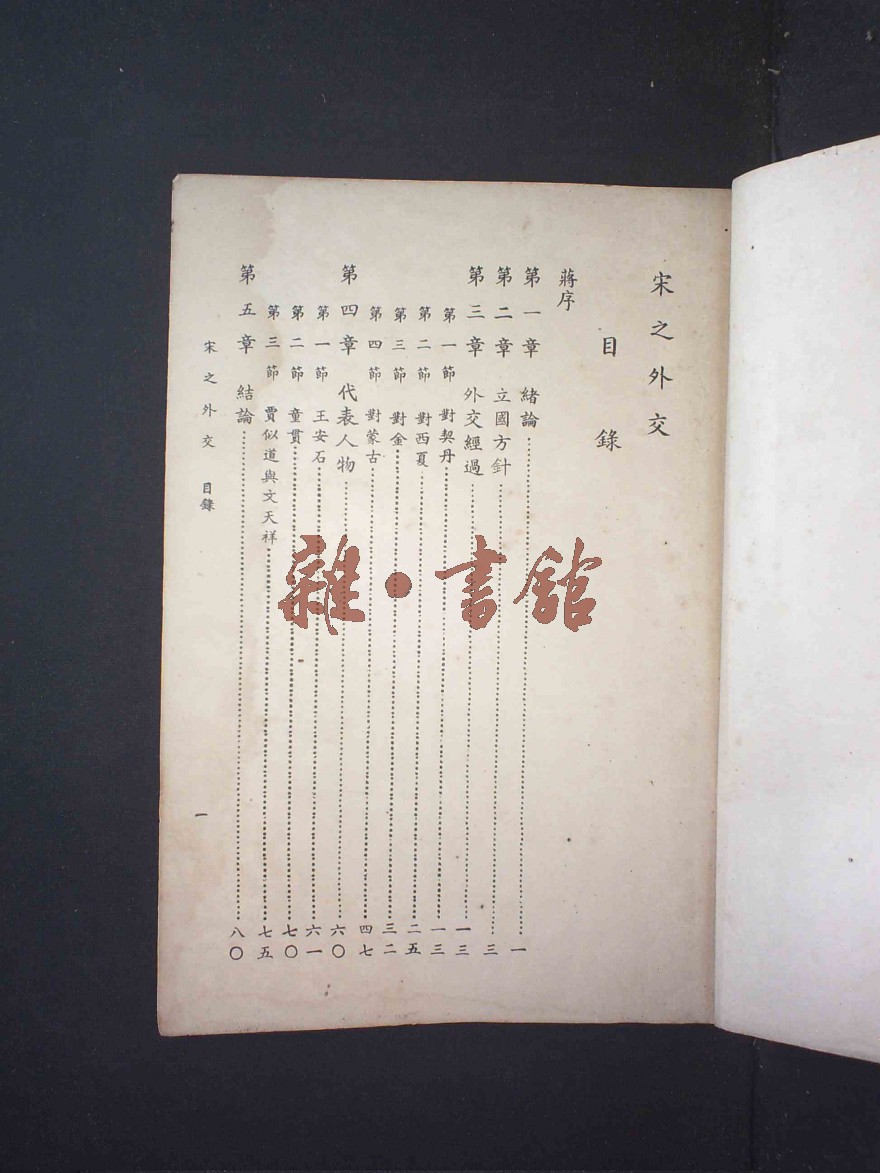 宋之外交
目錄
蔣序
第一章 緒論……一
第二章 立國方針……三
第三章 外交經過……一三
第一節 對契丹……一三
第二節 對西夏……二五
第三節 對金……三二
第四節 對蒙古……四七
第四章 代表人物……六〇
第一節 王安石……六一
第二節 童貫……七〇
第三節 賈似道與文天祥……七五
第五章 結論……八〇
宋之外交 目錄
一
雜·書館